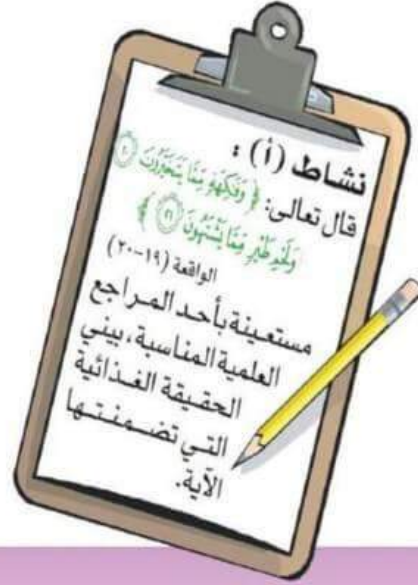 نشاط (أ) :
قال تعالى: ﴿ وَفَٰكِهَةٍ مِّمَّا يَتَخَيَّرُونَ ۝٢٠
وَلَحْمِ طَيْرٍ مِّمَّا يَشْتَهُونَ ۝٢١ ﴾
الواقعة (١٩-٢٠)
مستعينة بأحد المراجع
العلمية المناسبة، بيني
الحقيقة الغذائية
التي تضمنتها
الآية.